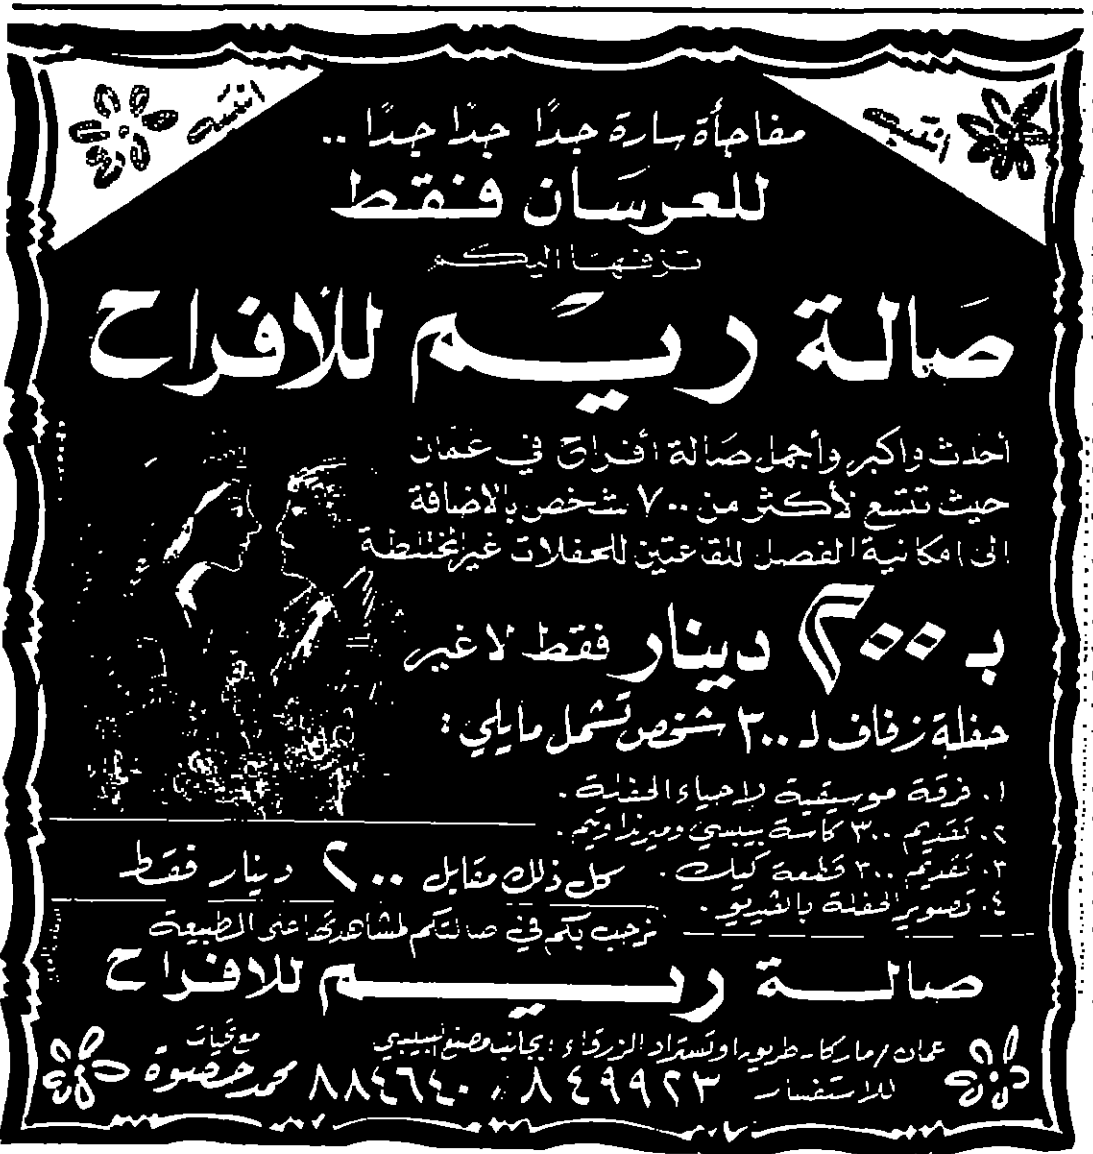 مفاجأة سارة جدًا جدًا جدًا ..
للعرسان فقط
تزفها اليكم
صالة ريم للافراح
أحدث واكبر وأجمل صالة أفراح في عمّان
حيث تتسع لأكثر من ٧٠٠ شخص بالاضافة
الى امكانية الفصل للقاعتين للحفلات غير المختلطة
بـ ٢٠٠ دينار فقط لاغير
حفلة زفاف لـ ٣٠٠ شخص تشمل مايلي :
١. فرقة موسيقية لاحياء الحفلة .
٢. تقديم ٣٠٠ كاسة بيبسي وميرندا وتيم .
٣. تقديم ٣٠٠ قطعة كيك .
٤. تصوير الحفلة بالفيديو .
كل ذلك مقابل ٢٠٠ دينار فقط
نرحب بكم في صالتكم لمشاهدتها على الطبيعة
صالة ريم للافراح
عمان / ماركا - طريق اوتستراد الزرقاء ؛ بجانب مصنع البيبسي
للاستفسار ٨٤٩٩٢٣ ، ٨٨٤٦٤٠
مع تحيات
محمد حصوة